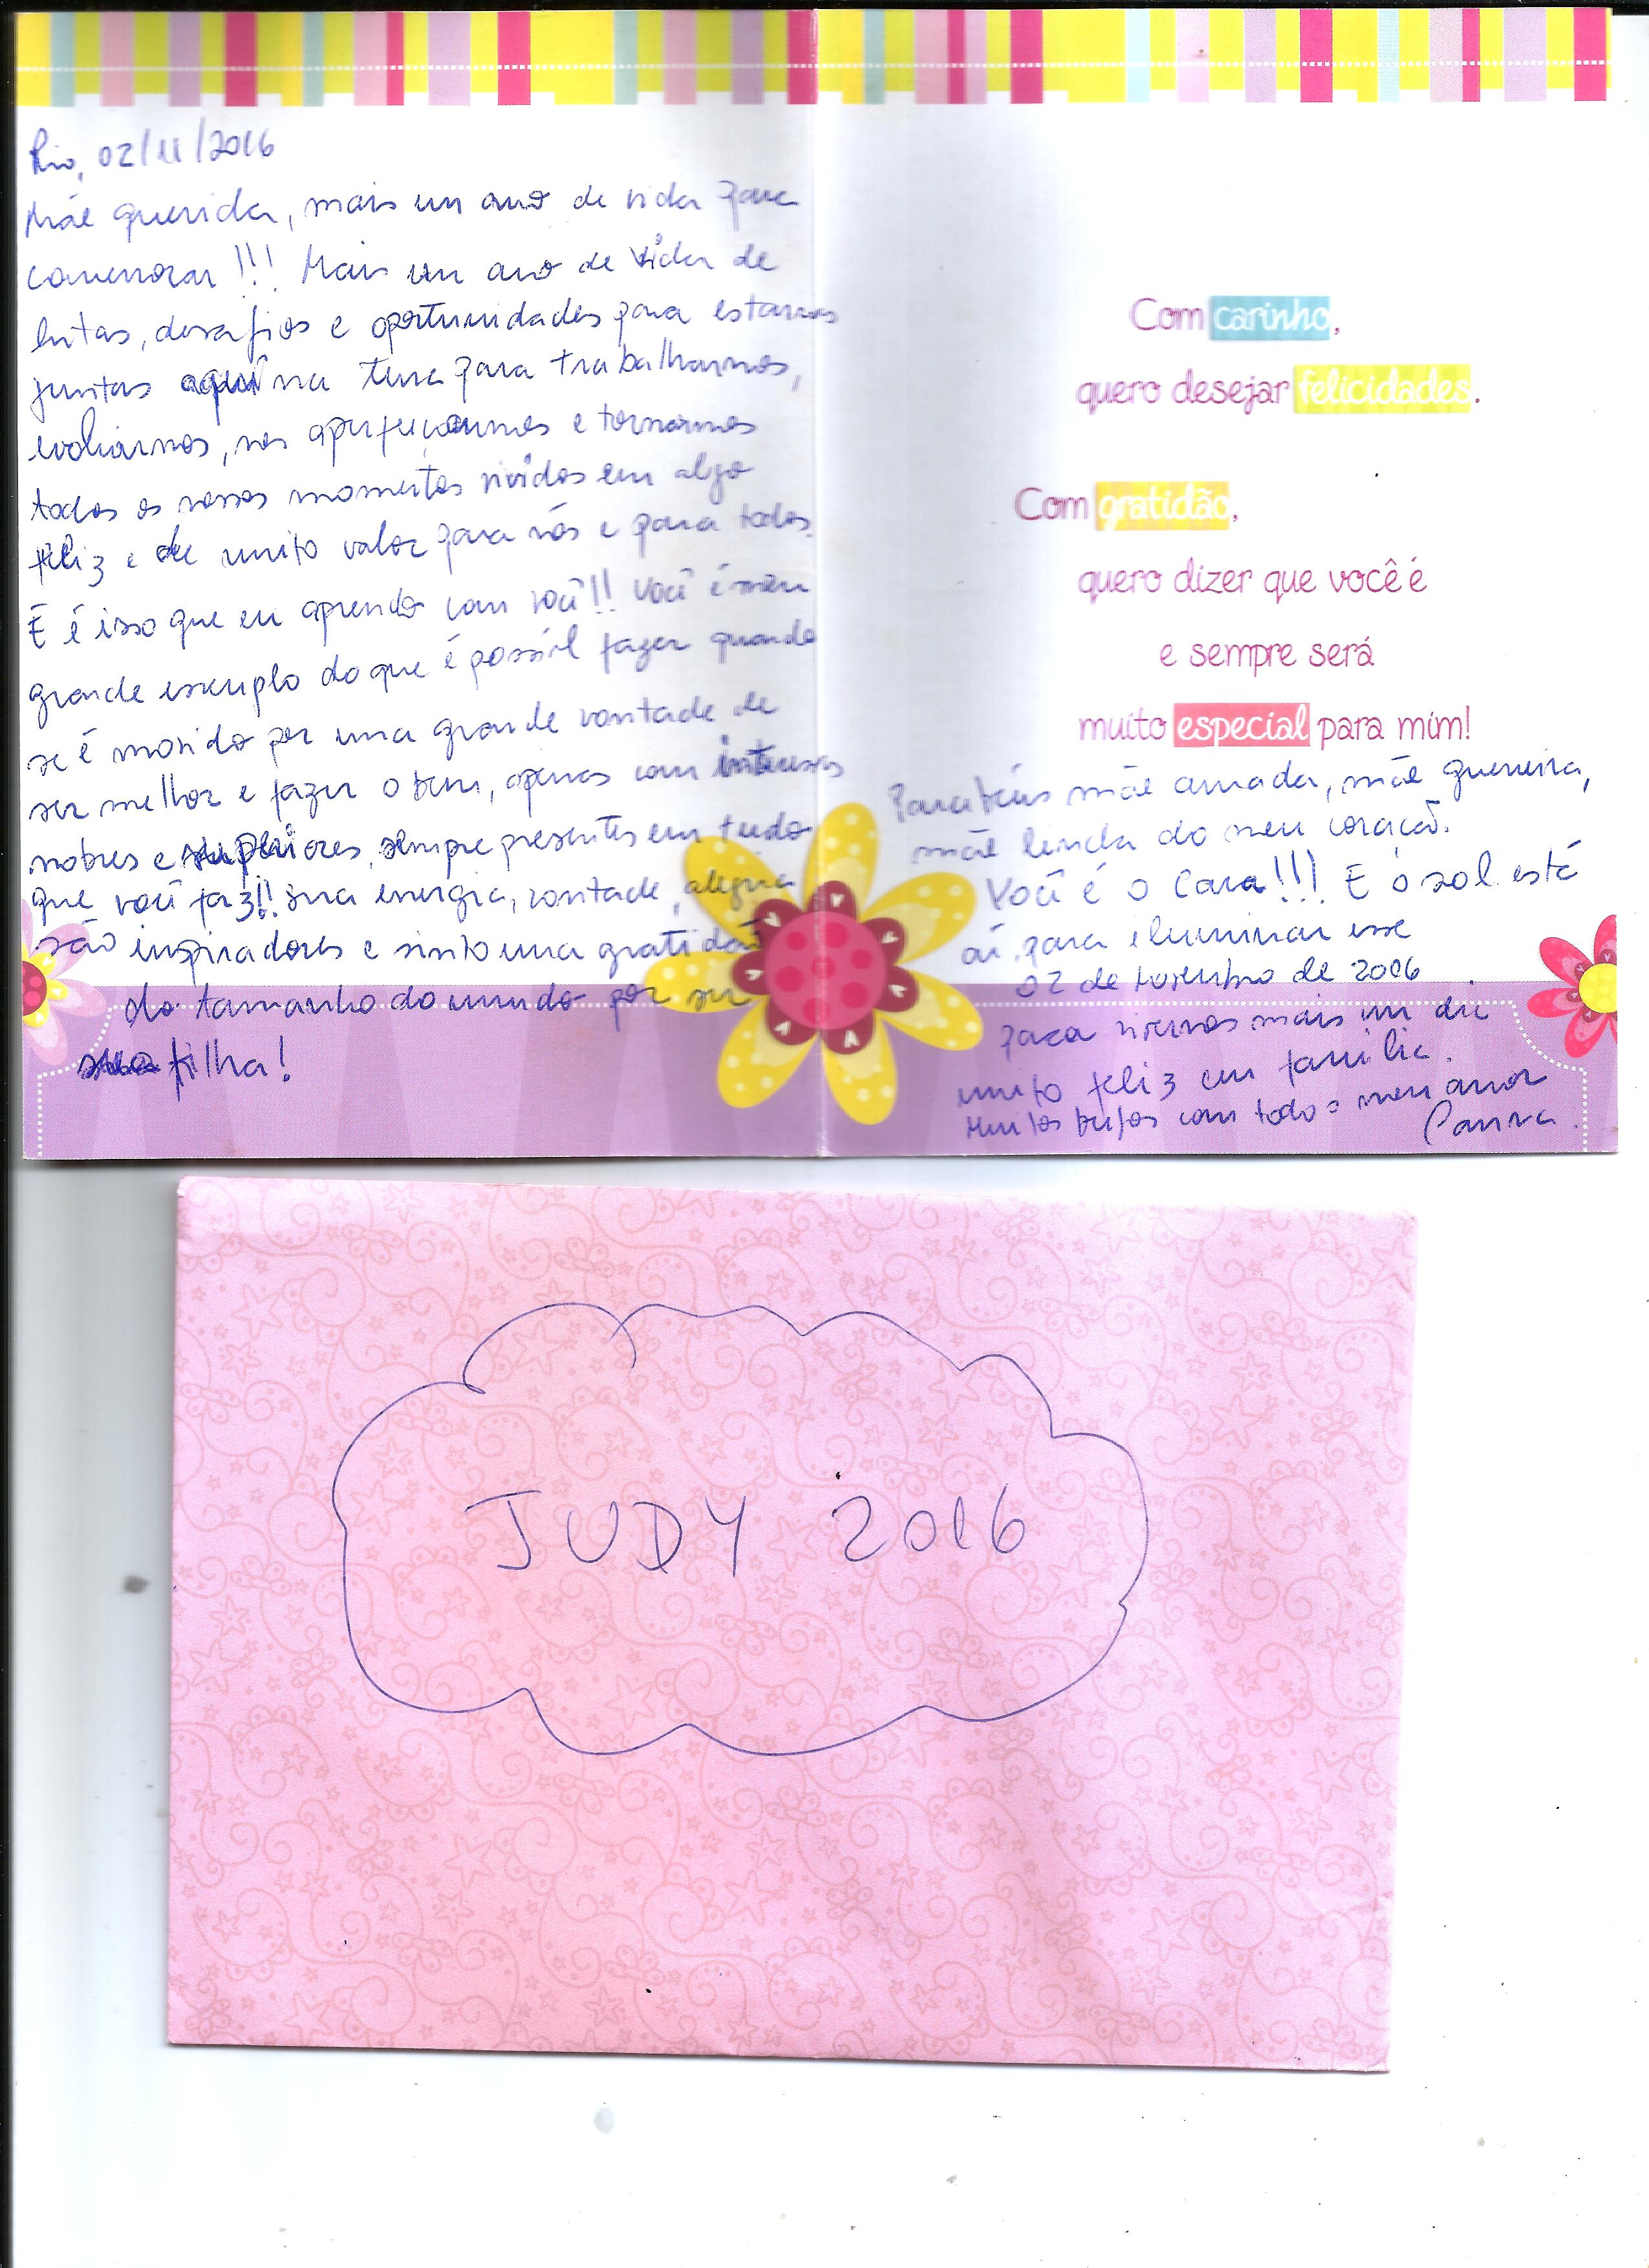 Rio, 02/11/2016
Mãe querida, mais um ano de vida para
comemorar!!! Mais um ano de vida de
lutas, desafios e oportunidades para estarmos
juntas aqui na terra para trabalharmos,
evoluirmos, nos aperfeiçoarmos e tornarmos
todos os nossos momentos vividos em algo
feliz e de muito valor para nós e para todos.
E é isso que eu aprendo com você!! Você é meu
grande exemplo do que é possível fazer quando
se é movido por uma grande vontade de
ser melhor e fazer o bem, apenas com intensos
nobres e superiores, sempre presentes em tudo
que você faz!! Sua energia, vontade, alegria
são inspiradores e sinto uma gratidão
do tamanho do mundo por ser
sua filha!
Com carinho,
quero desejar felicidades.
Com gratidão,
quero dizer que você é
e sempre será
muito especial para mim!
Parabéns mãe amada, mãe guerreira,
mãe linda do meu coração.
Você é o Cara!!! E o sol está
aí para iluminar esse
02 de novembro de 2016
para vivermos mais um dia
muito feliz em família.
Muitos beijos com todo o meu amor
JUDY 2016